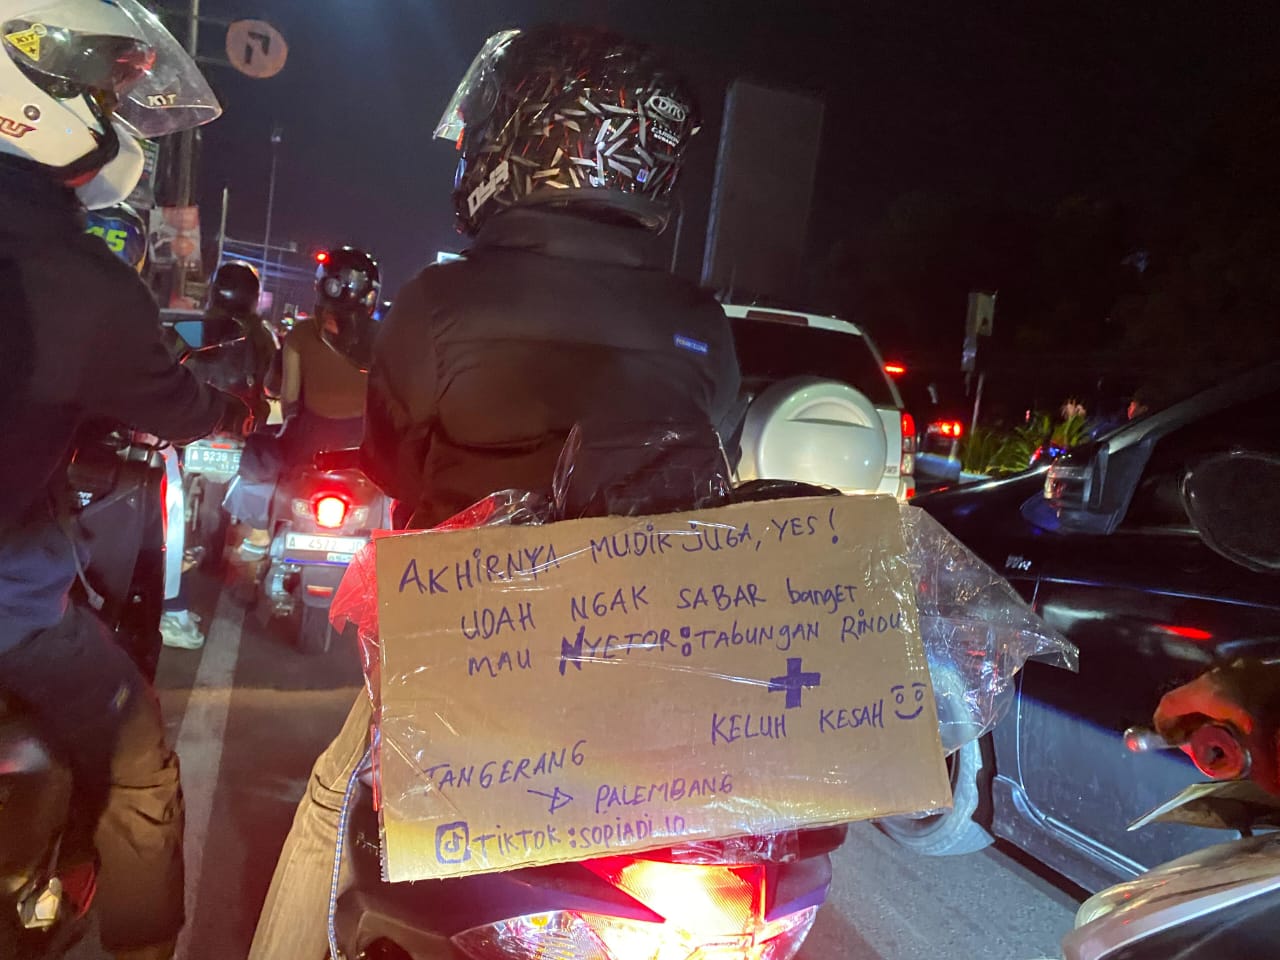 KYT
KYT
DYR
DYR
A 5239
A 4572
AKHIRNYA MUDIK JUGA, YES!
UDAH NGAK SABAR banget
MAU NYETOR: TABUNGAN RINDU
+
KELUH KESAH
TANGERANG
PALEMBANG
TIKTOK: SOPIADI.10